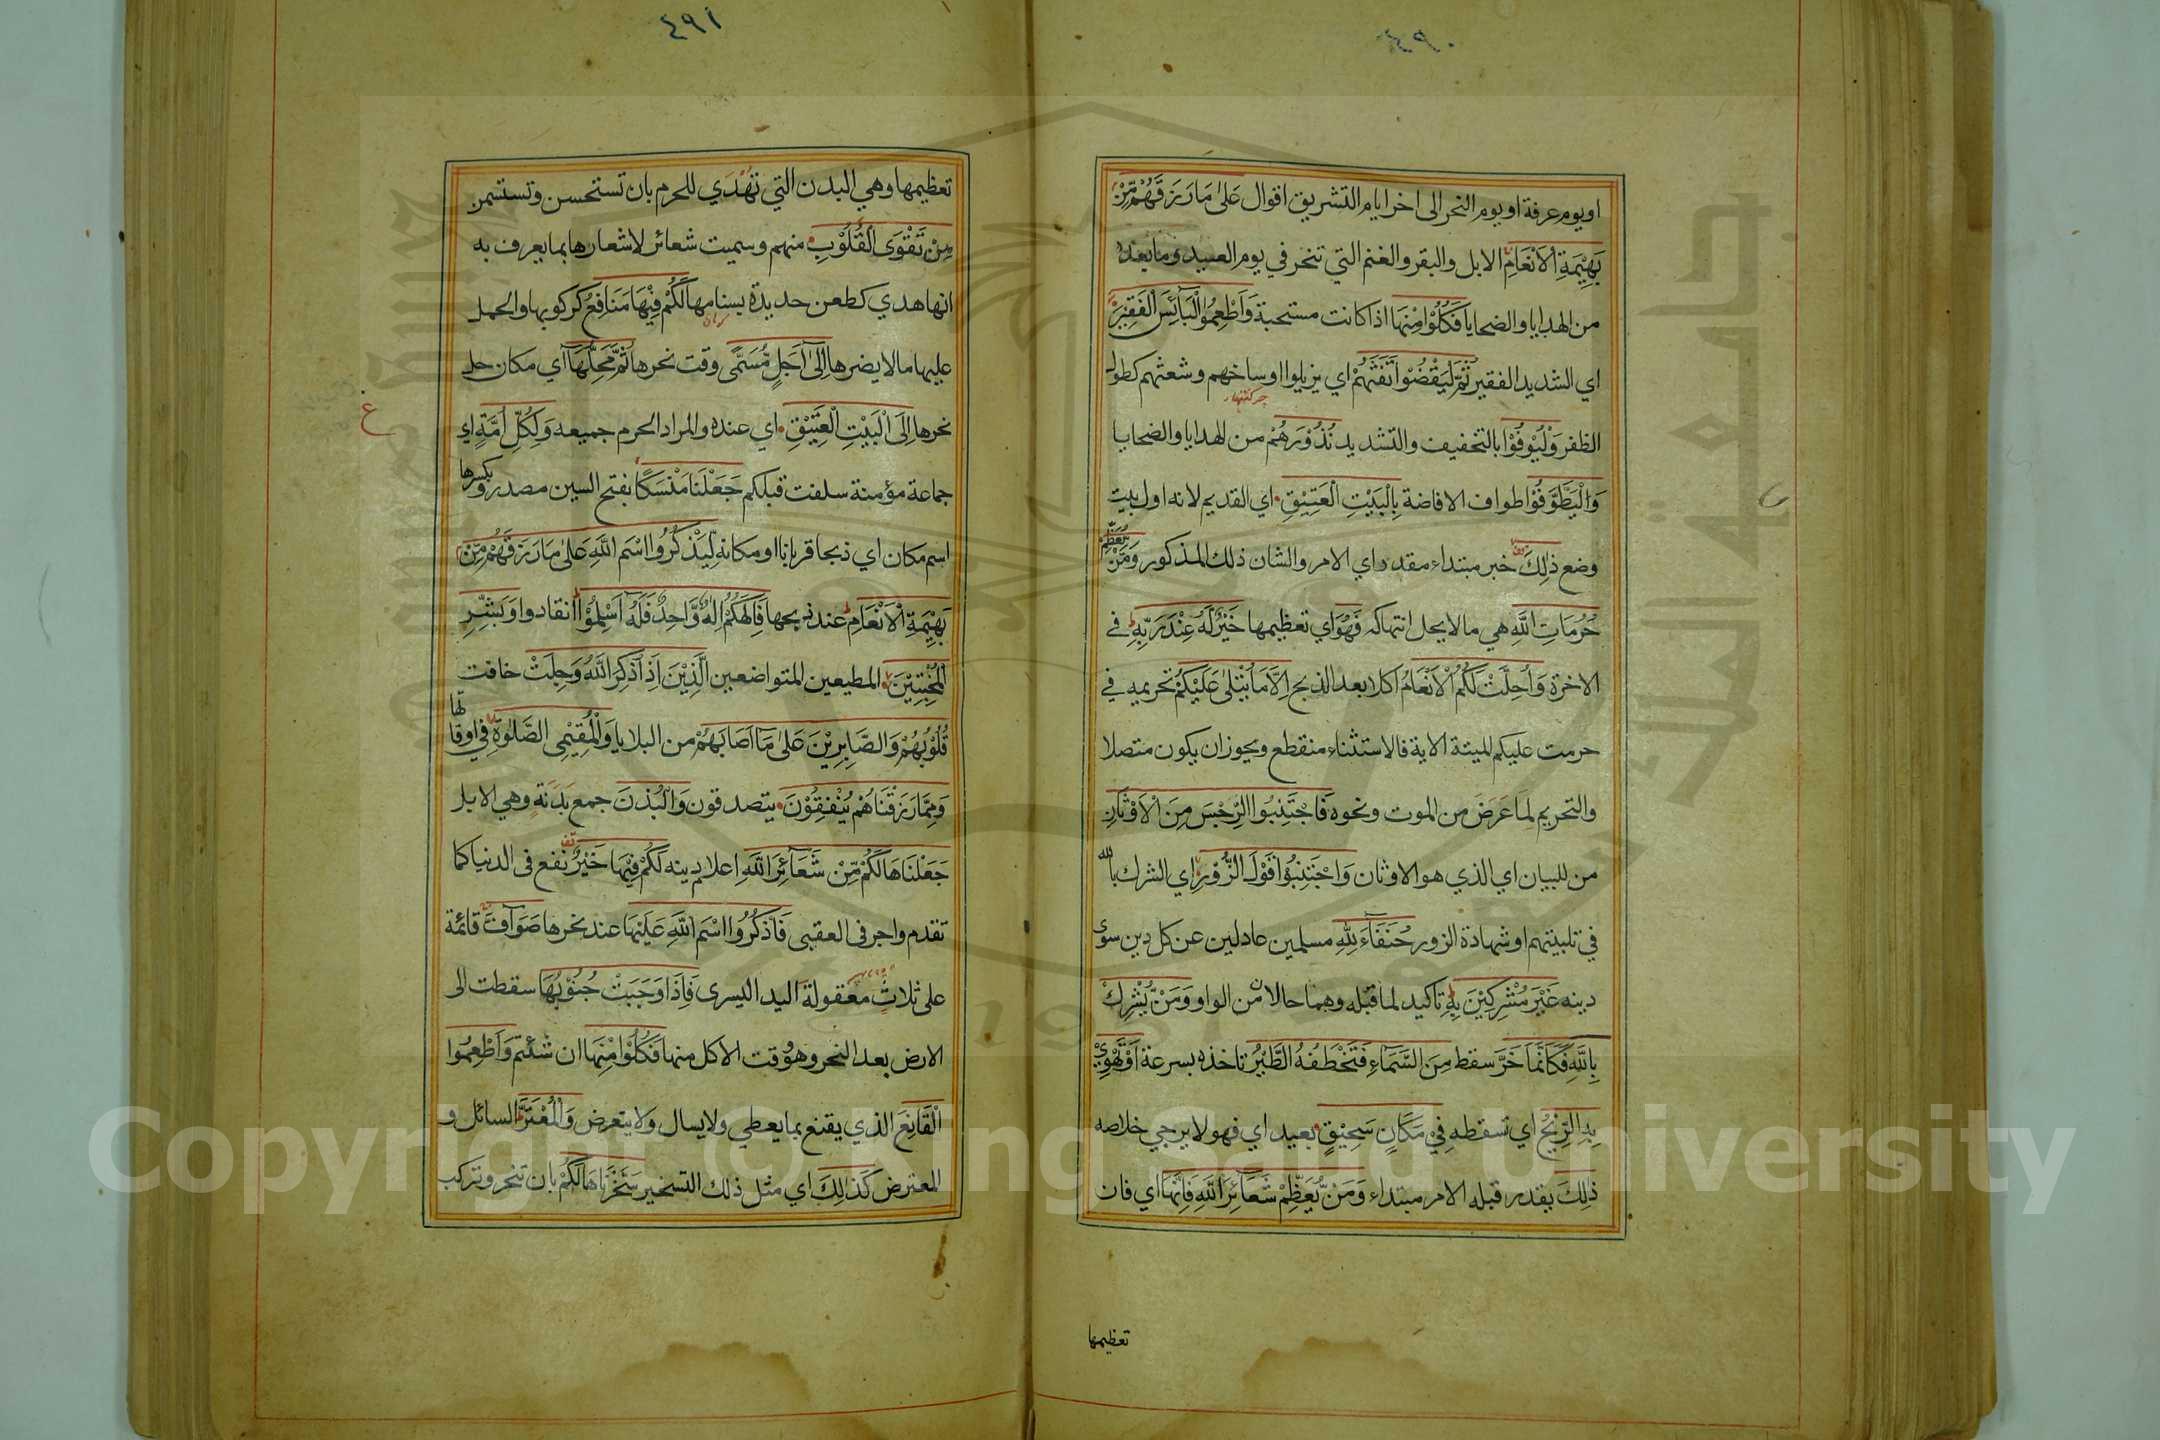 ٤٩٠
او يوم عرفة او يوم النحر الى اخر ايام التشريق اقوال عَلىٰ مَا رَزَقَهُمْ مِّنْ
بَهِيْمَةِ الْاَنْعَامِ الابل والبقر والغنم التي تنحر في يوم العيد وما بعده
من الهدايا والضحايا فَكُلُوْا مِنْهَا اذا كانت مستحبة وَاَطْعِمُوا الْبَآئِسَ الْفَقِيْرَ
اي الشديد الفقير ثُمَّ لْيَقْضُوْا تَفَثَهُمْ اي يزيلوا اوساخهم وشعثهم كطول
الظفر وَلْيُوْفُوْا بالتخفيف والتشديد نُذُوْرَهُمْ من الهدايا والضحايا
وَالْيَطَّوَّفُوْا طواف الافاضة بِالْبَيْتِ الْعَتِيْقِ اي القديم لانه اول بيت
وضع ذٰلِكَ خبر مبتداء مقدر اي الامر والشان ذلك المذكور وَمَنْ يُعَظِّمْ
حُرُمَاتِ اللّٰهِ هي ما لا يحل انتهاكه فَهُوَ اي تعظيمها خَيْرٌ لَّهُ عِنْدَ رَبِّهِ في
الاخرة وَاُحِلَّتْ لَكُمُ الْاَنْعَامُ اكلا بعد الذبح اِلَّا مَا يُتْلىٰ عَلَيْكُمْ تحريمه في
حرمت عليكم الميتة الاية فالاستثناء منقطع ويجوز ان يكون متصلا
والتحريم لما عَرَضَ من الموت ونحوه فَاجْتَنِبُوا الرِّجْسَ مِنَ الْاَوْثَانِ
من للبيان اي الذي هو الاوثان وَاجْتَنِبُوْا قَوْلَ الزُّوْرِ اي الشرك بالله
في تلبيتهم او شهادة الزور حُنَفَآءَ لِلّٰهِ مسلمين عادلين عن كل دين سوى
دينه غَيْرَ مُشْرِكِيْنَ بِهِ تاكيد لما قبله وهما حالان من الواو وَمَنْ يُّشْرِكْ
بِاللّٰهِ فَكَاَنَّمَا خَرَّ سقط مِنَ السَّمَآءِ فَتَخْطَفُهُ الطَّيْرُ تاخذه بسرعة اَوْ تَهْوِيْ
بِهِ الرِّيْحُ اي تسقطه فِيْ مَكَانٍ سَحِيْقٍ بعيد اي فهو لا يرجي خلاصه
ذٰلِكَ يقدر قبله الامر مبتداء وَمَنْ يُّعَظِّمْ شَعَآئِرَ اللّٰهِ فَاِنَّهَا اي فان
تعظيمها
٤٩١
تعظيمها وهي البدن التي تهدي للحرم بان تستحسن وتستسمن
مِنْ تَقْوَى الْقُلُوْبِ منهم وسميت شعائر لاشعارها بما يعرف به
انها هدي كطعن حديدة بسنامها لَكُمْ فِيْهَا مَنَافِعُ كركوبها والحمل
عليها ما لا يضرها اِلىٰٓ اَجَلٍ مُّسَمًّى وقت نحرها ثُمَّ مَحِلُّهَآ اي مكان حل
نحرها اِلَى الْبَيْتِ الْعَتِيْقِ اي عنده والمراد الحرم جميعه وَلِكُلِّ اُمَّةٍ اي
ع
جماعة مؤمنة سلفت قبلكم جَعَلْنَا مَنْسَكًا بفتح السين مصدر وبكسرها
اسم مكان اي ذبحا قربانا او مكانه لِّيَذْكُرُوا اسْمَ اللّٰهِ عَلىٰ مَا رَزَقَهُمْ مِّنْ
بَهِيْمَةِ الْاَنْعَامِ عند ذبحها فَاِلٰهُكُمْ اِلٰهٌ وَّاحِدٌ فَلَهُ اَسْلِمُوْا انقادوا وَبَشِّرِ
الْمُخْبِتِيْنَ المطيعين المتواضعين الَّذِيْنَ اِذَا ذُكِرَ اللّٰهُ وَجِلَتْ خافت
قُلُوْبُهُمْ وَالصَّابِرِيْنَ عَلىٰ مَآ اَصَابَهُمْ من البلايا وَالْمُقِيْمِى الصَّلٰوةِ في اوقاتها
وَمِمَّا رَزَقْنَاهُمْ يُنْفِقُوْنَ يتصدقون وَالْبُدْنَ جمع بَدَنَةٍ وهي الابل
جَعَلْنَاهَا لَكُمْ مِّنْ شَعَآئِرِ اللّٰهِ اعلام دينه لَكُمْ فِيْهَا خَيْرٌ نفع في الدنيا كما
تقدم واجر في العقبى فَاذْكُرُوا اسْمَ اللّٰهِ عَلَيْهَا عند نحرها صَوَآفَّ قائمة
على ثلاثٍ معقولة اليد اليسرى فَاِذَا وَجَبَتْ جُنُوْبُهَا سقطت الى
الارض بعد النحر وهو وقت الاكل منها فَكُلُوْا مِنْهَا ان شئتم وَاَطْعِمُوا
الْقَانِعَ الذي يقنع بما يعطي ولا يسال ولا يتعرض وَالْمُعْتَرَّ السائل و
المعترض كَذٰلِكَ اي مثل ذلك التسخير سَخَّرْنَاهَا لَكُمْ بان تنحر وتركب
Copyright © King Saud University